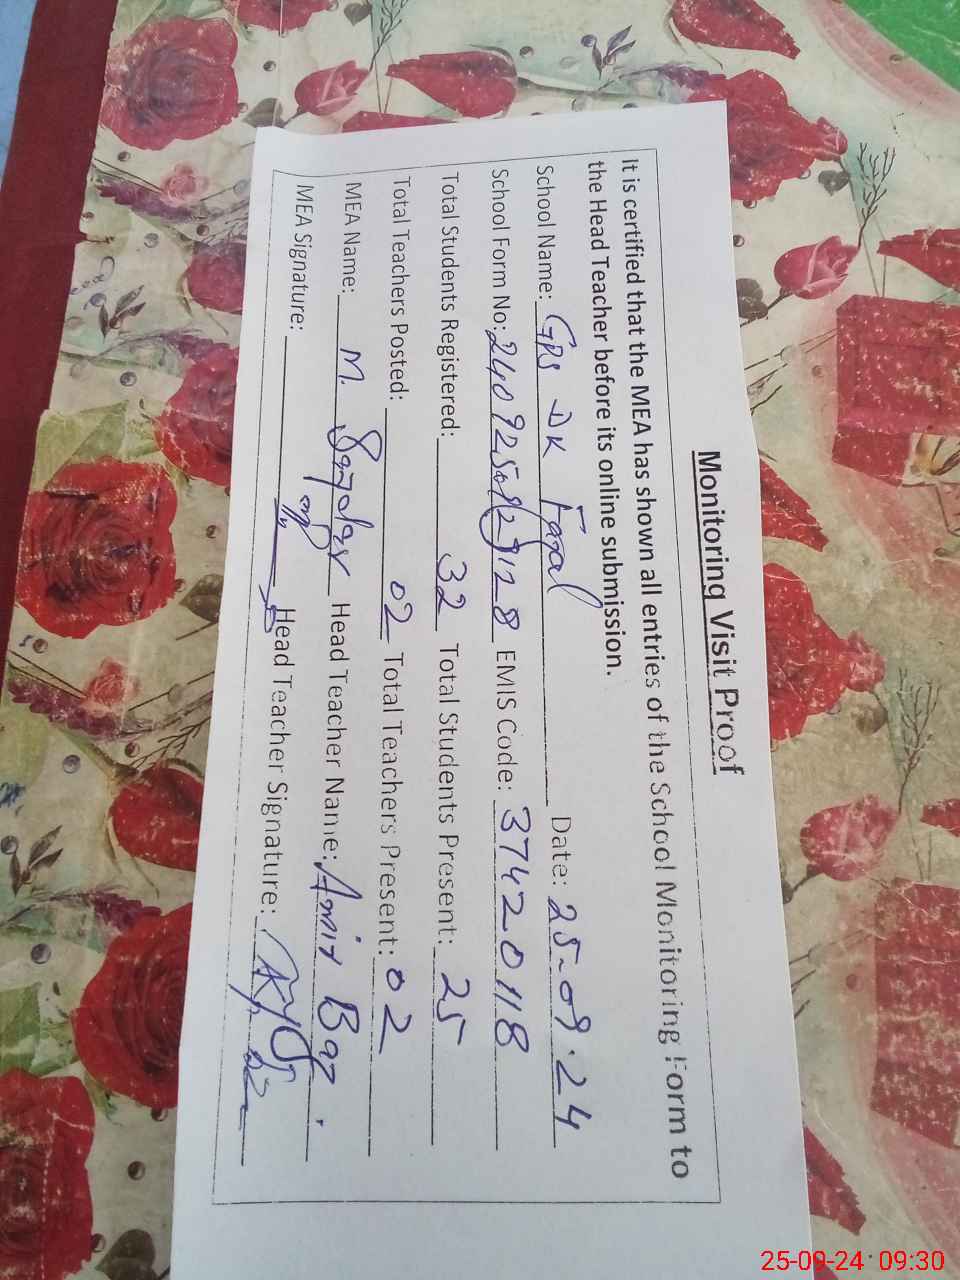 Monitoring Visit Proof
It is certified that the MEA has shown all entries of the School Monitoring Form to
the Head Teacher before its online submission.
School Name: GPS DK Fazal Date: 25-09-24
School Form No: EMIS Code: 37420118
Total Students Registered: 32 Total Students Present: 25
Total Teachers Posted: 02 Total Teachers Present: 02
MEA Name: M. Head Teacher Name: Amir
MEA Signature: Head Teacher Signature:
25-09-24 09:30